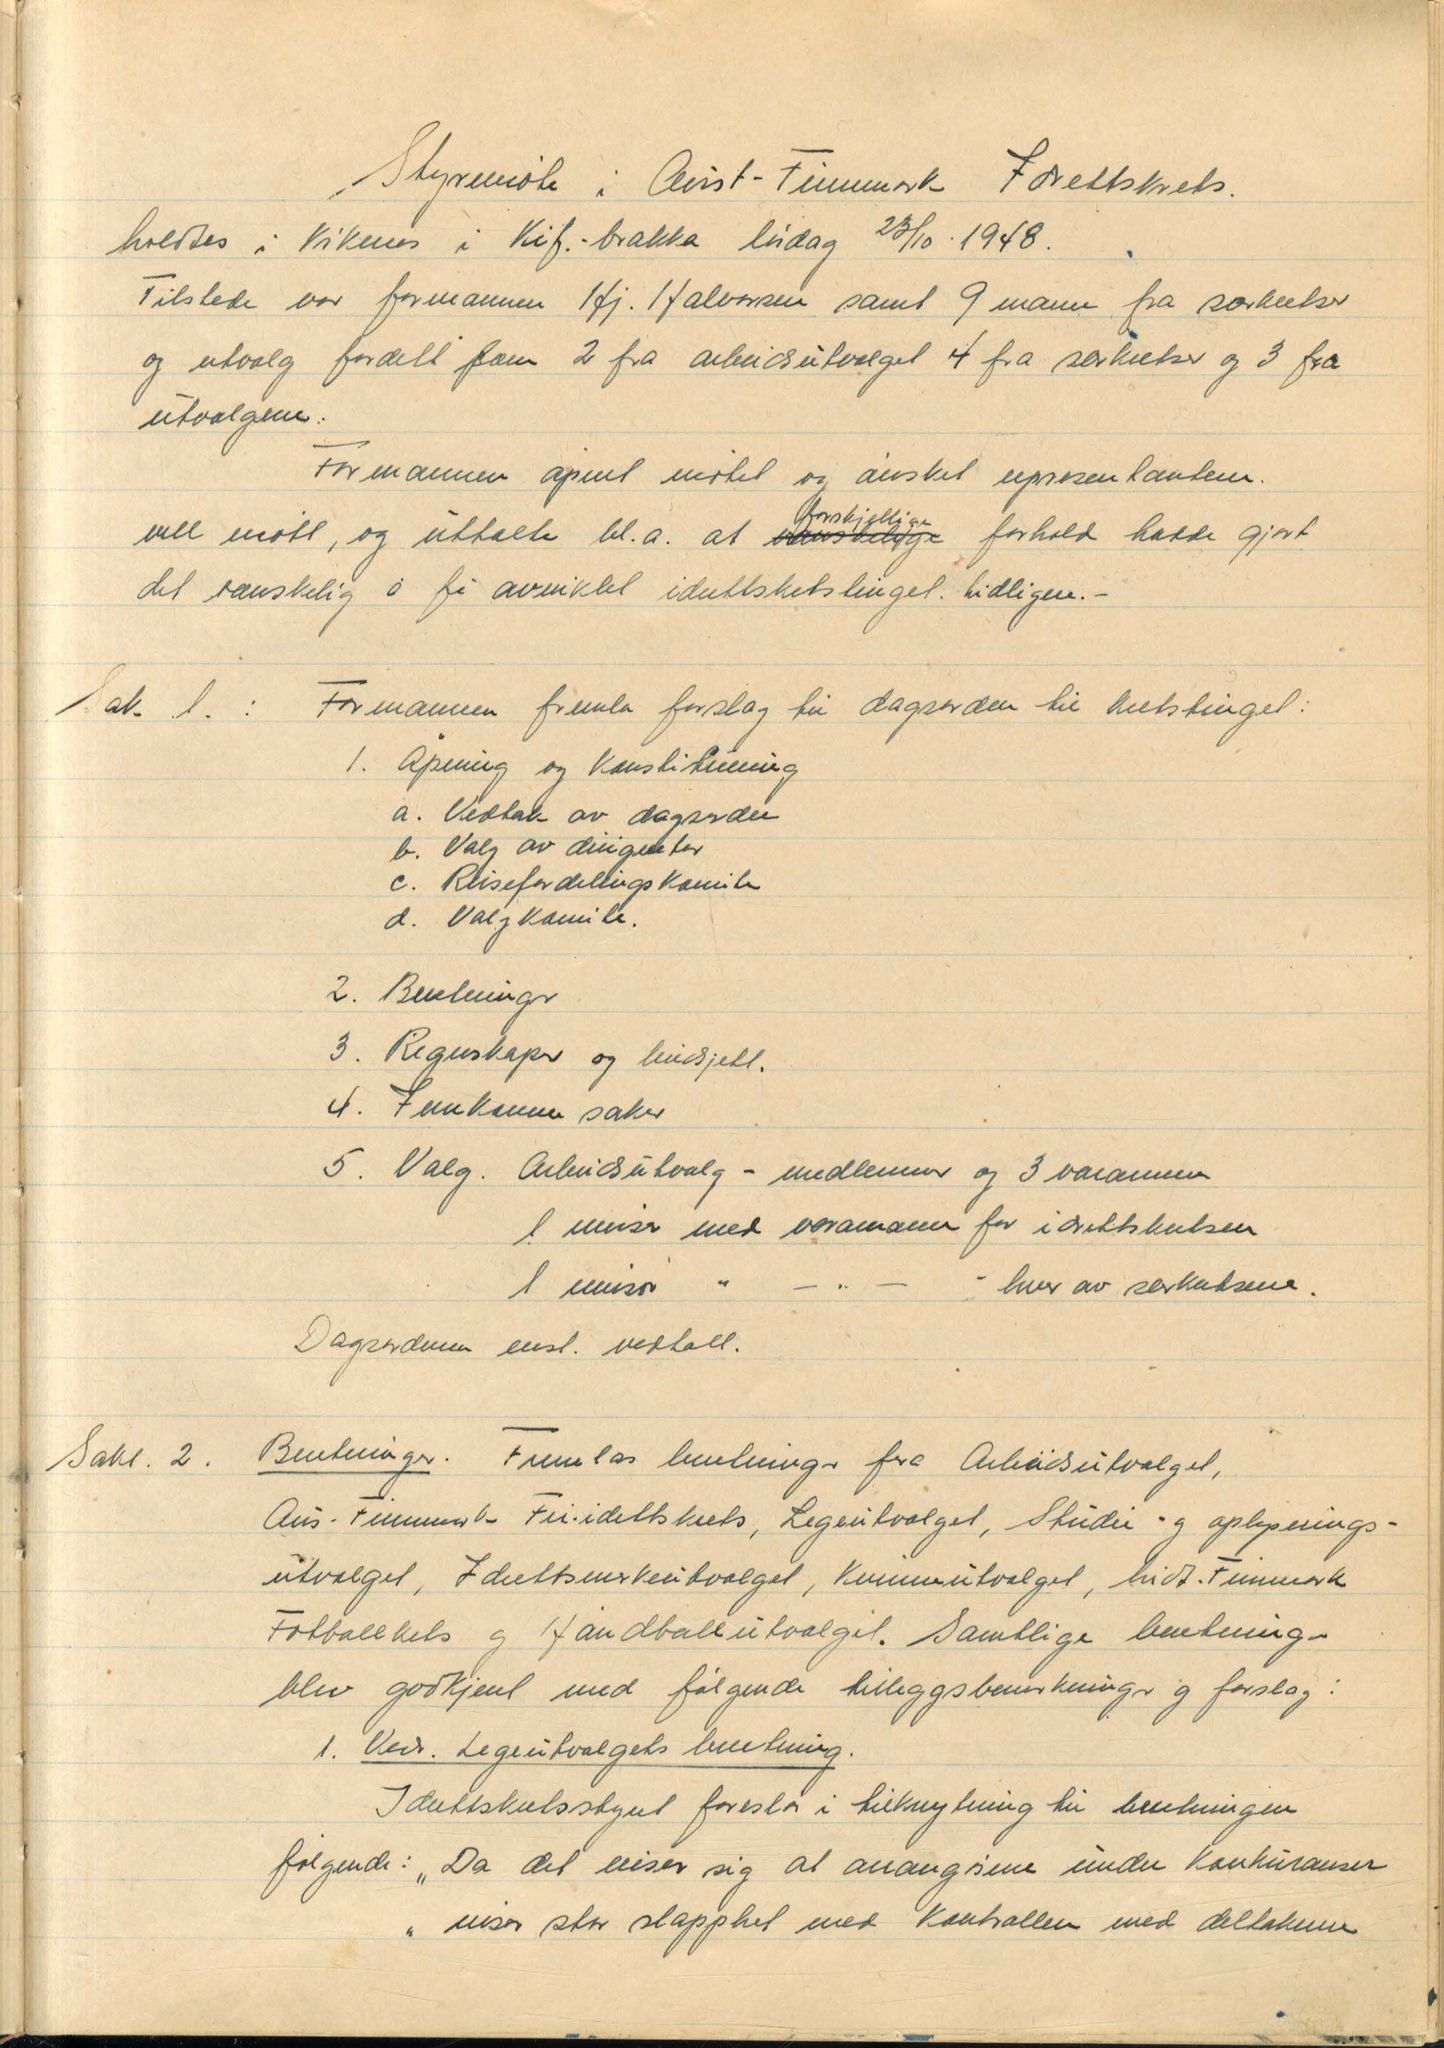 Styremøte i Aust-Finnmark Idrettskrets.
holdtes i Kirkenes i Kif.-brakka lørdag 23/10. 1948.
Tilstede var formannen Hj. Halvorsen samt 9 mann fra særkretser
og utvalg fordelt 2 fra arbeidsutvalget 4 fra særkretser og 3 fra
utvalgene.
Formannen åpnet møtet og ønsket representantene
vell møtt, og uttalte bl.a. at vanskelige forskjellige forhold hadde gjort
det vanskelig å få avviklet idrettskretstinget tidligere.-
Sak 1. : Formannen fremla forslag til dagsorden til kretstinget:
1. Åpning og konstituering
a. Vedtak av dagsorden
b. Valg av dirigenter
c. Reisefordelingskomite
d. Valgkomite.
2. Beretninger
3. Regnskaper og budsjett.
4. Innkomne saker
5. Valg. Arbeidsutvalg - medlemmer og 3 varamenn
1 revisor med varamann for idrettskretsen
1 revisor " - " - - hver av særkretsene.
Dagsordenen enst. vedtatt.
Sak. 2. Beretninger. Fremlas beretninger fra Arbeidsutvalget,
Aus-Finnmark Fri-idettskrets, Legeutvalget, Studie- og oplysnings-
utvalget, Idrettsmerkeutvalget, Kvinneutvalget, Finnmark
Fotballkrets og Håndballutvalget. Samtlige beretninger
blev godkjent med følgende tilleggsbemerkninger og forslag:
1. Vedr. Legeutvalgets beretning.
Idrettskretsstyret foreslår i tilknytning til beretningen
følgende: „Da det viser sig at arrangørene under konkuranser
„ viser stor slapphet med kontrollen med deltakerne